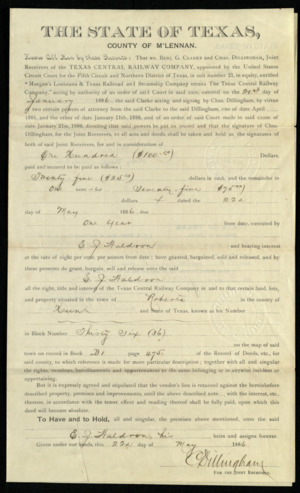 THE STATE OF TEXAS,
COUNTY OF M'LENNAN.
Know All Men by these Presents: That we, BENJ. G. CLARKE and CHAS. DILLINGHAM, Joint
Receivers of the TEXAS CENTRAL RAILWAY COMPANY, appointed by the United States
Circuit Court for the Fifth Circuit and Northern District of Texas, in suit number 21, in equity, entitled
"Morgan's Louisiana & Texas Railroad and Steamship Company versus The Texas Central Railway
Company," acting by authority of an order of said Court in said case, entered on the day of
January 1886, the said Clarke acting and signing by Chas. Dillingham, by virtue
of two certain powers of attorney from the said Clarke to the said Dillingham, one of date April
188, and the other of date January 1886, and of an order of said Court made in said cause of
date January 1886, directing that said powers be put on record and that the signature of Chas.
Dillingham, for the Joint Receivers, to all acts and deeds shall be taken and held as the signatures of
both of said Joint Receivers, for and in consideration of
One Hundred ($100.00) Dollars,
paid and secured to be paid as follows:
Twenty five ($25.00) dollars in cash, and the remainder in
One note Seventy five $75.00
dollars dated the 22d
day of May 1886, due
One year
from date, executed by
E. J. Waldron and bearing interest
at the rate of eight per cent. per annum from date; have granted, bargained, sold and released, and by
these presents do grant, bargain, sell and release unto the said
E. J. Waldron
all the right, title and interest of the Texas Central Railway Company in and to that certain land, lots,
and property situated in the town of Roberts in the county of
Hunt and State of Texas, known as lot Number
in Block Number Thirty Six (36)
on the map of said
town on record in Book D1 page 275 of the Record of Deeds, etc., for
said county, to which reference is made for more particular description; together with all and singular
the rights, members, hereditaments and appurtenances to the same belonging or in anywise incident or
appertaining.
But it is expressly agreed and stipulated that the vendor's lien is retained against the hereinbefore
described property, premises and improvements, until the above described note with the interest, etc.,
thereon, in accordance with the tenor effect and reading thereof shall be fully paid, upon which this
deed will become absolute.
To Have and to Hold, all and singular, the premises above mentioned, unto the said
E. J. Waldron, his heirs and assigns forever.
Given under our hands, this 22d day of May 1886.
C Dillingham
FOR THE JOINT RECEIVERS.